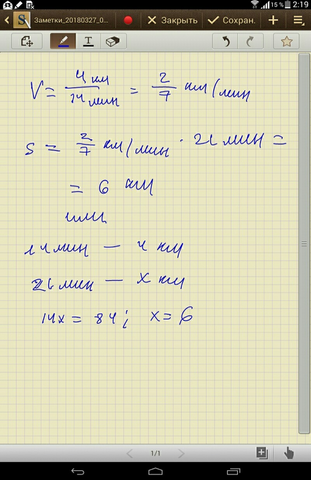 15 % 2:19
Заметки_20180327_0... Закрыть Сохран.
V = 4 км / 14 мин = 2/7 км/мин
S = 2/7 км/мин · 21 мин =
= 6 км
или
14 мин — 4 км
21 мин — x км
14x = 84; x = 6
1/1